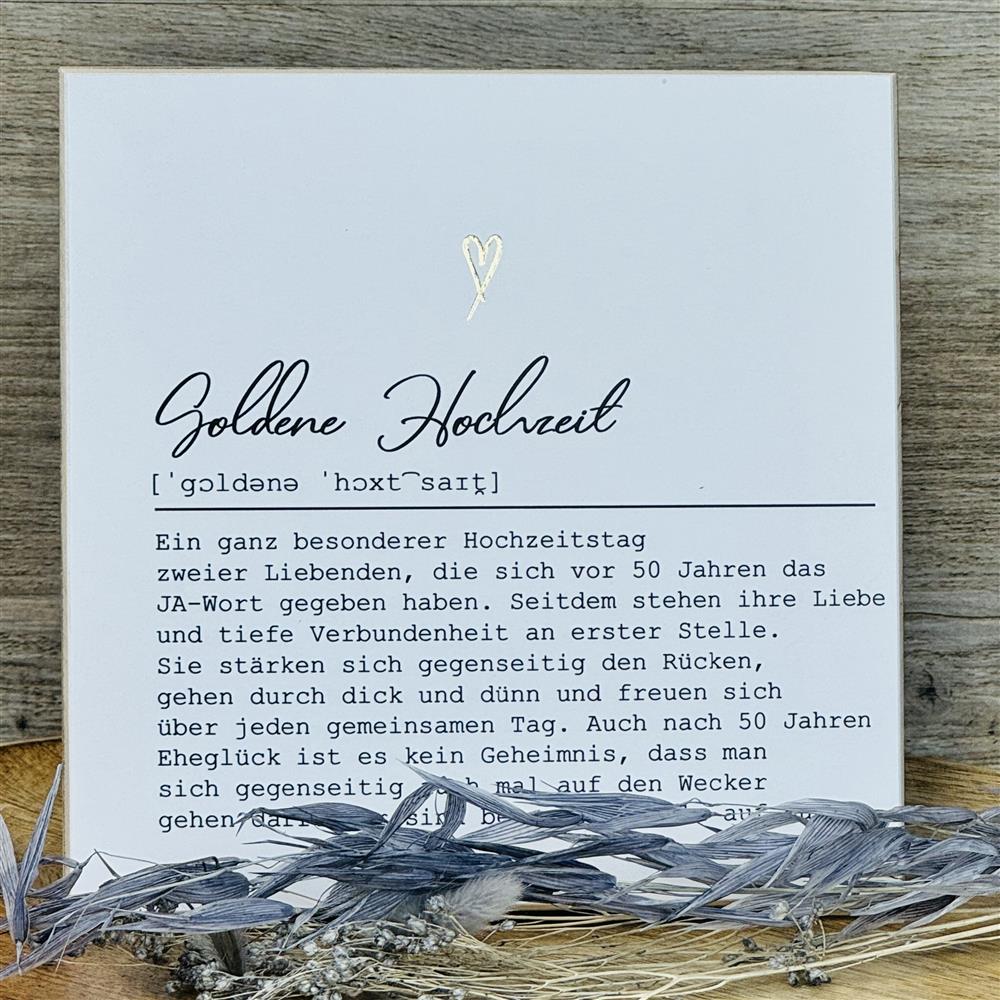 Goldene Hochzeit
[ˈɡɔldənə ˈhɔxt͡saɪt̯]
Ein ganz besonderer Hochzeitstag
zweier Liebenden, die sich vor 50 Jahren das
JA-Wort gegeben haben. Seitdem stehen ihre Liebe
und tiefe Verbundenheit an erster Stelle.
Sie stärken sich gegenseitig den Rücken,
gehen durch dick und dünn und freuen sich
über jeden gemeinsamen Tag. Auch nach 50 Jahren
Eheglück ist es kein Geheimnis, dass man
sich gegenseitig mal auf den Wecker
gehen